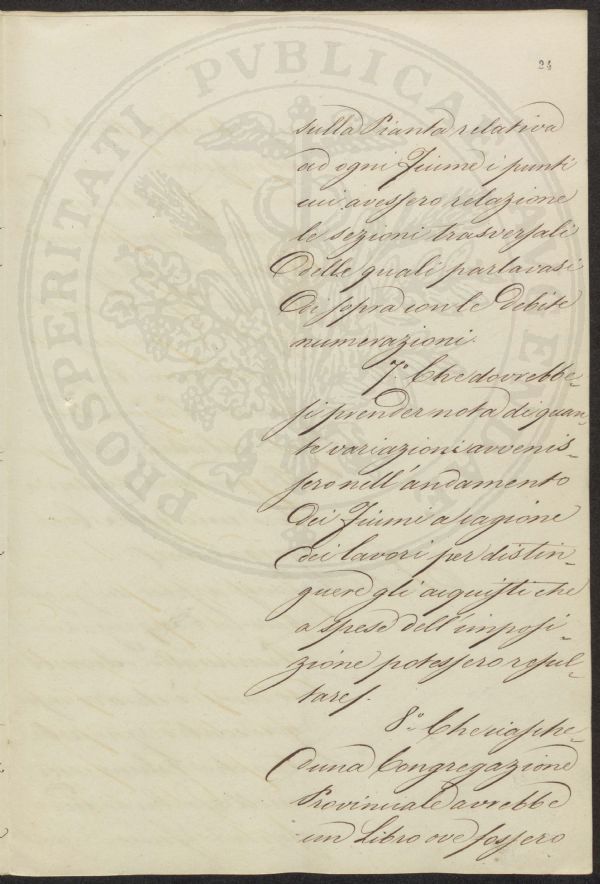 24
sulla Pianta relativa
ad ogni Fiume i punti
cui avessero relazione
le sezioni trasversali
delle quali parlavasi
di sopra con le debite
numerazioni.
7.° Che dovrebbe-
si prender nota di quan-
te variazioni avvenis-
sero nell'andamento
dei Fiumi a cagione
dei lavori per distin-
guere gli acquisti che
a spese dell'imposi-
zione potessero resul-
tare.
8.° Che ciasche-
duna Congregazione
Provinciale avrebbe
un Libro ove fossero
PROSPERITATI PVBLICAE